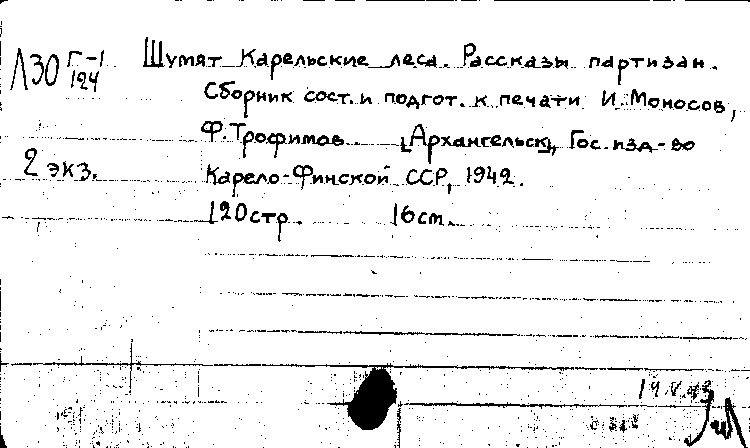 Л30 Г-1
124
Шумят Карельские леса. Рассказы партизан.
Сборник сост. и подгот. к печати И. Моносов,
Ф. Трофимов. [Архангельск], Гос. изд-во
2 экз.
Карело-Финской ССР, 1942.
120 стр. 16 см.